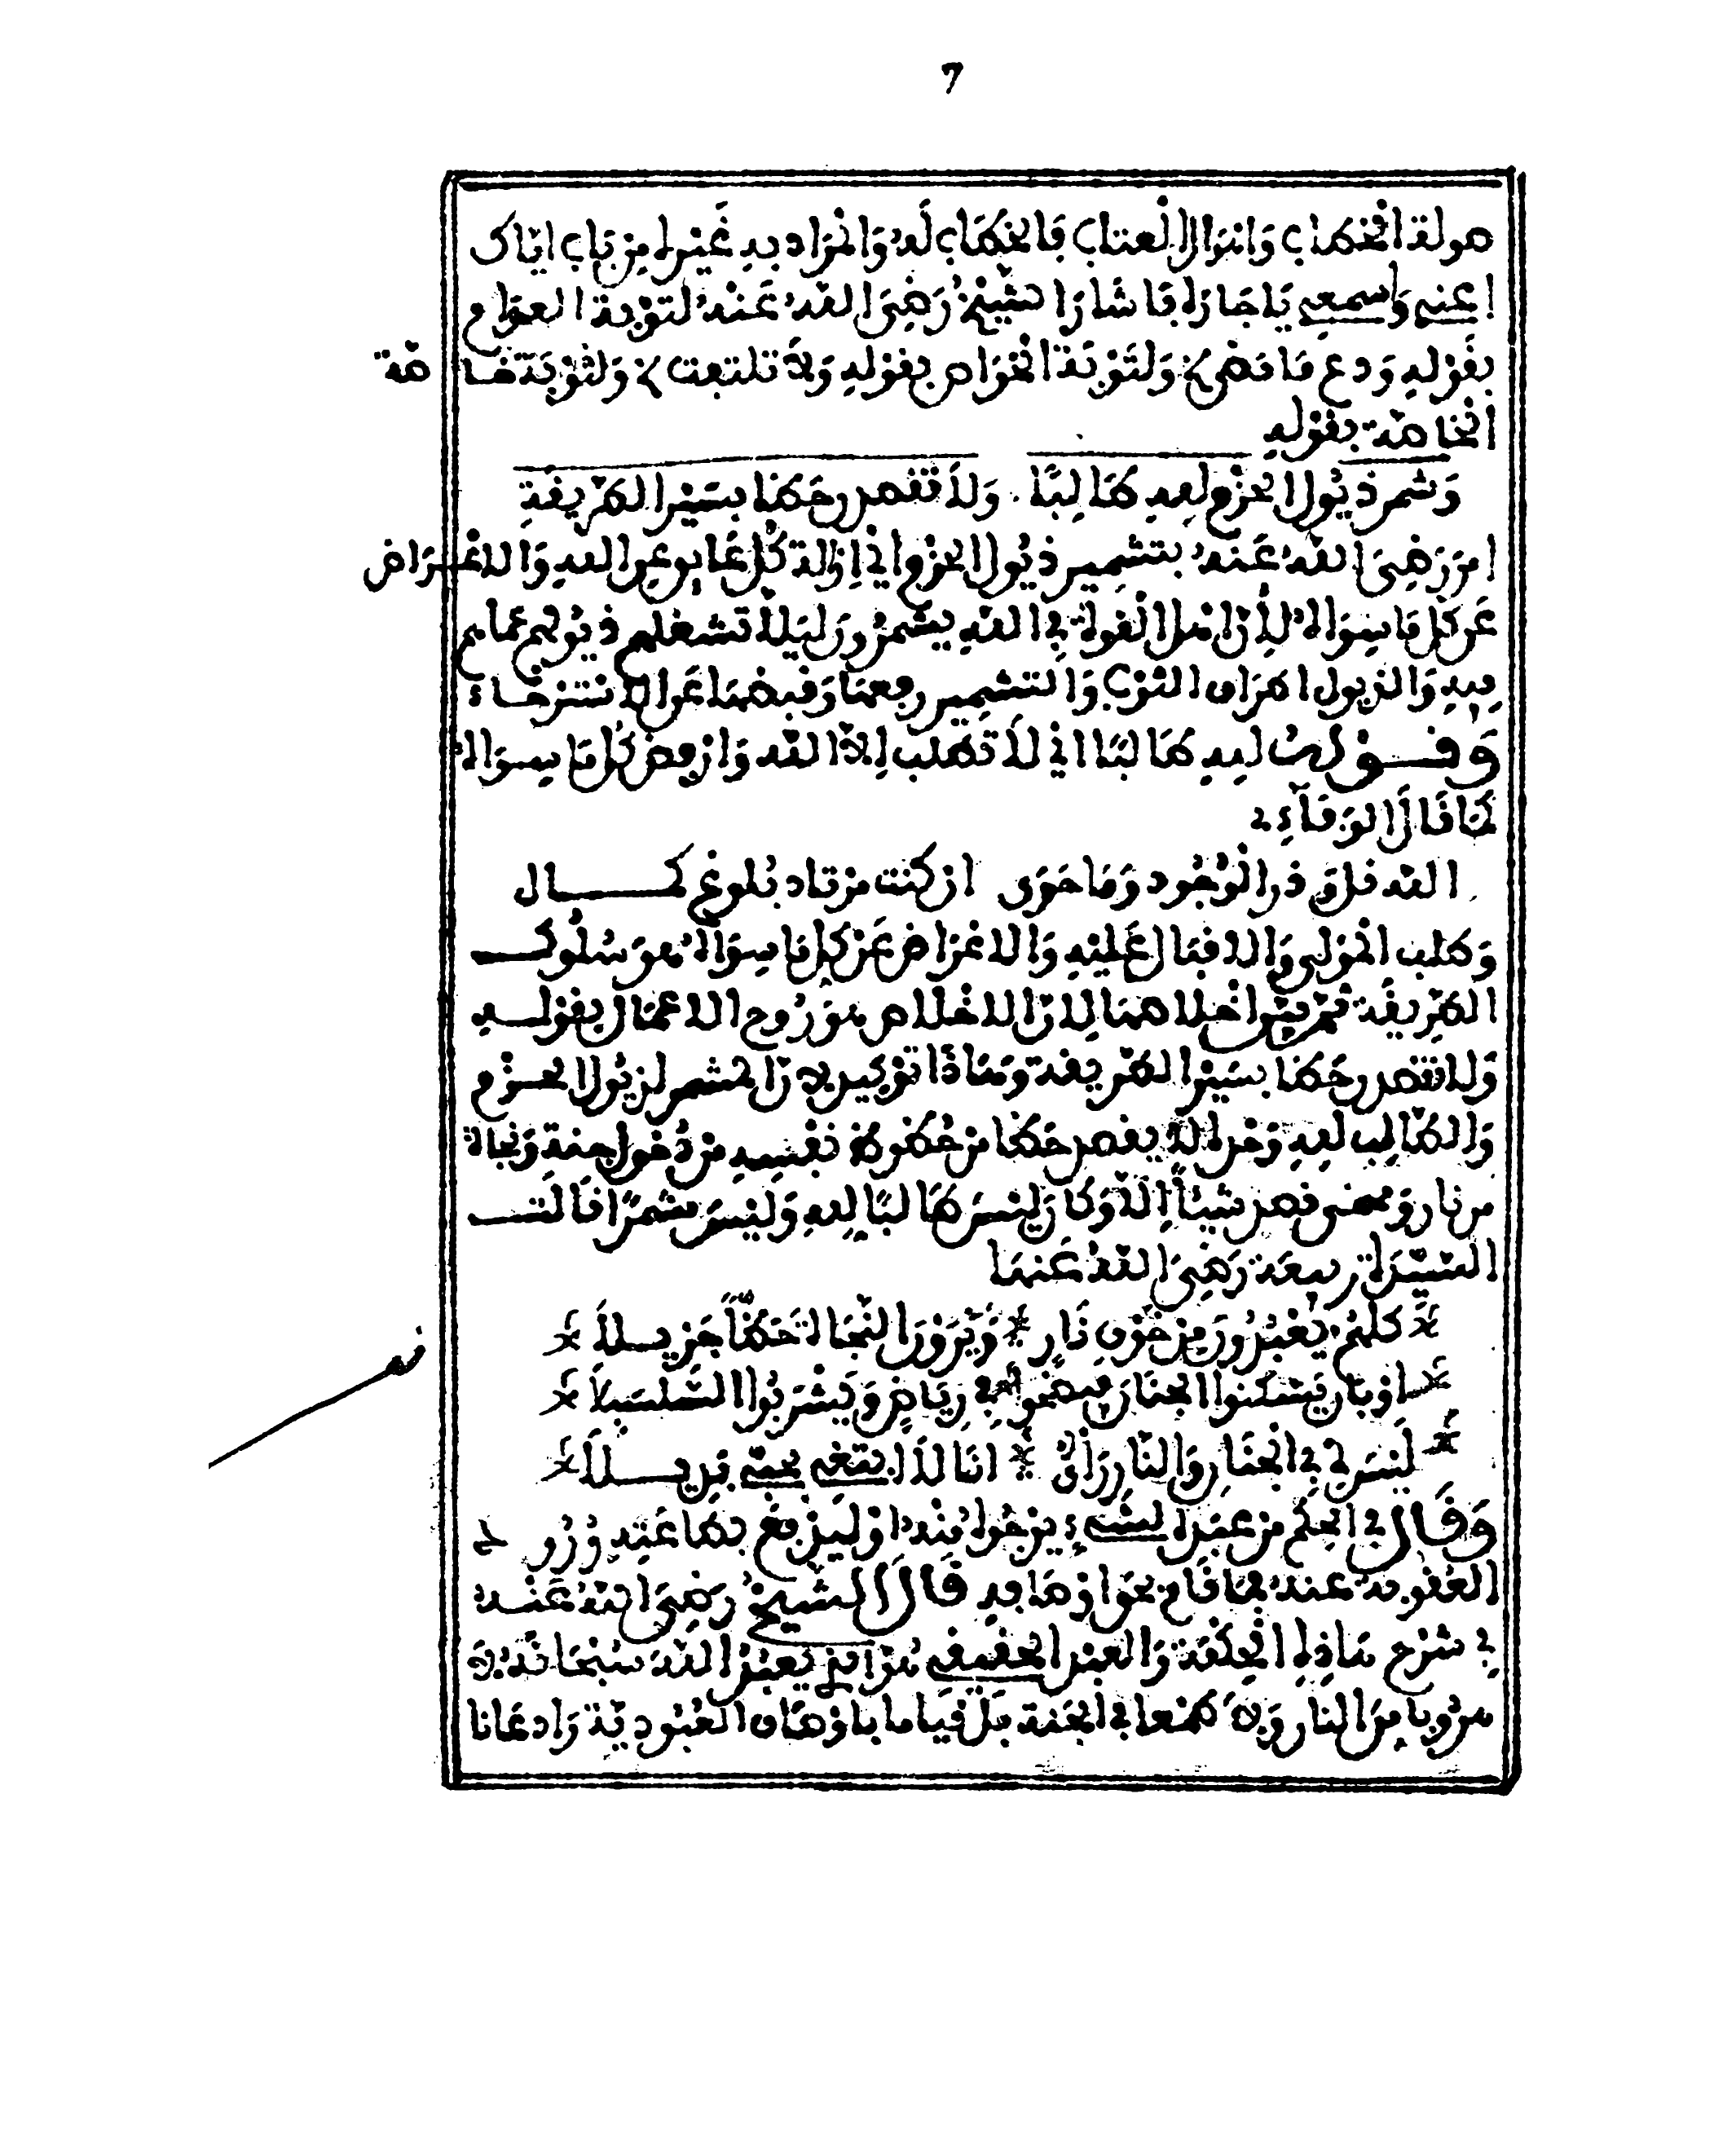 7
صولة الخطاب وانزال العتاب فالخطاب له والمراد به غيره من باب اياك
اعني واسمعي يا جارة فاشار الشيخ رضي الله عنه لتوبة العوام
بقوله ودع ما مضى ولتوبة الخواص بقوله ولا تلتفت ولتوبة خاصة
الخاصة بقوله
وشمر ذيول الحزم لله طالبا ولا تقصدن حظا بسير الطريقة
امر رضي الله عنه بتشمير ذيول الحزم اي ازالة كل عايق عن الله والاعراض
عن كل ما سواه لان اهل القوة في الله يشمرون ليلا تشغلهم ذيولهم عما هم
فيه والذيول اطراف الثوب والتشمير رفعها وقبضها عن الاسترخاء
وقوله لله طالبا اي لا تطلب الا الله وارفض كل ما سواه
كما قال العرفاء
الله قل وذر الوجود وما حوى ان كنت مرتاد بلوغ كمال
وطلب المولى والاقبال عليه والاعراض عن كل ما سواه هو سلوك
الطريقة ثم بين اخلاصها لان الاخلاص هو روح الاعمال بقوله
ولا تقصدن حظا بسير الطريقة وهذا توكيد لان المشمر لذيول الحزم
والطالب لله وحده لا يقصد حظا من حظوظ نفسه من دخول جنة ونجاة
من نار ومهمى قصد شيئا الا وكان ليس طالبا لله وليس مشمرا قالت
السيدة ربيعة رضي الله عنها
كلهم يعبدون من خوف نار * ويرون النجاة حظا جزيلا
او بان يسكنوا الجنان فيضحوا في رياض ويشربوا السلسبيلا
ليس لي في الجنان والنار راي * انا لا ابتغي بحبي بديلا
وقال في الحكم من عبده لشيء يرجوه منه او ليدفع بطاعته ورود
العقوبة عنه فما قام بحق اوصافه قال الشيخ رضي الله عنه
في شرح هذه الحكمة والعبد الحقيقي هو من يعبد الله سبحانه لا
هروبا من النار ولا طمعا في الجنة بل قياما باوصاف العبودية واذعانا